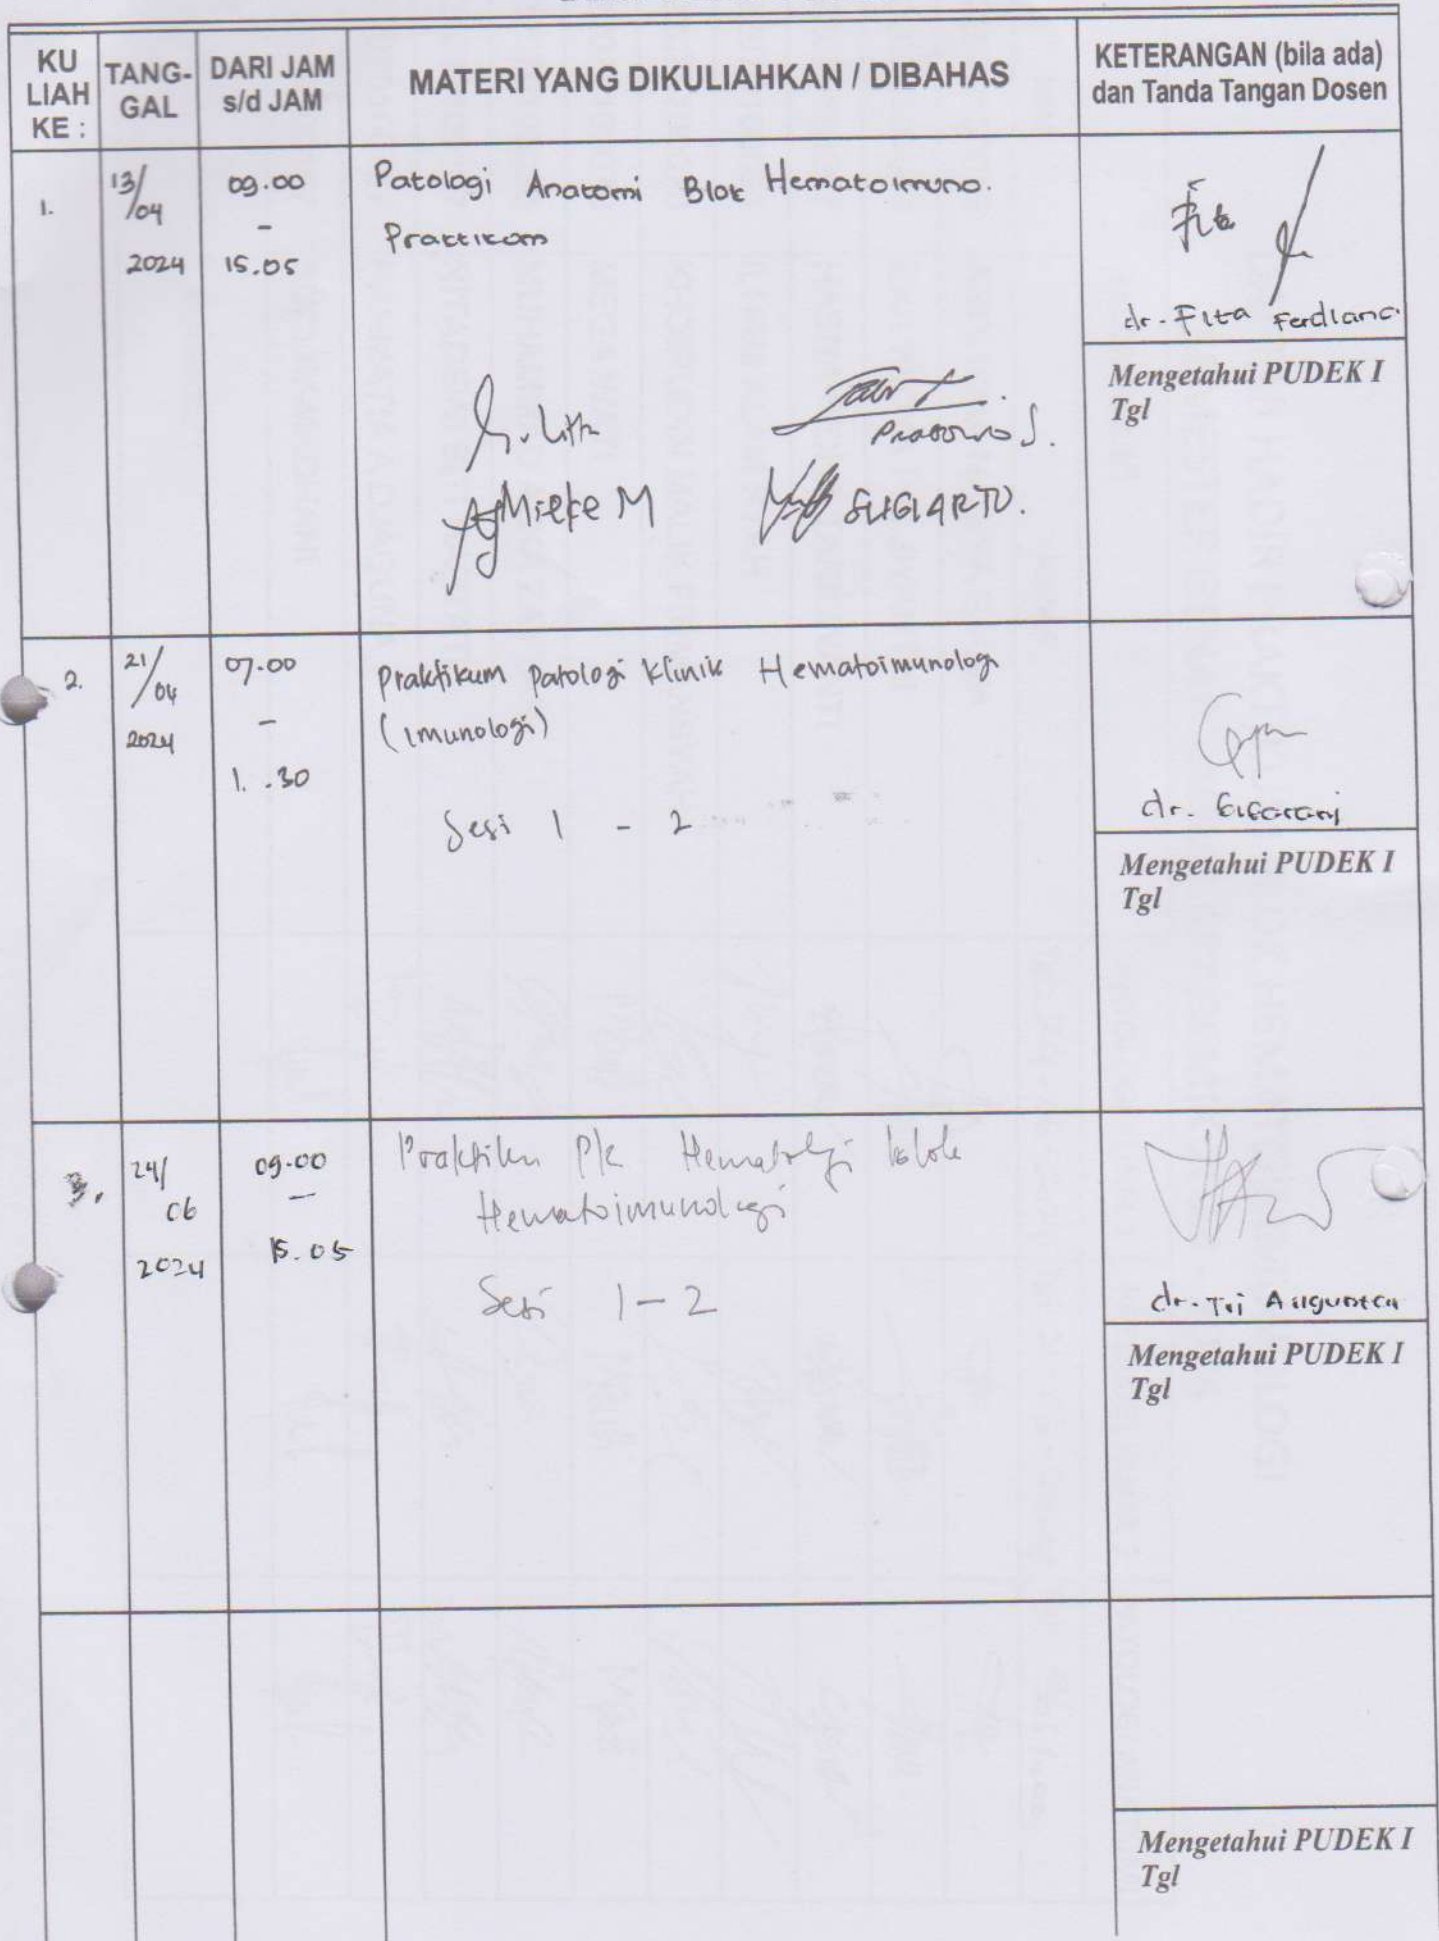 KU
LIAH
KE :
TANG-
GAL
DARI JAM
s/d JAM
MATERI YANG DIKULIAHKAN / DIBAHAS
KETERANGAN (bila ada)
dan Tanda Tangan Dosen
1.
13/
/04
2024
09.00
-
15.05
Patologi Anatomi Blok Hematoimuno.
Praktikom
Fita
dr. Fita Ferdiana
Mengetahui PUDEK I
Tgl
Pratowo S.
Mieke M
SUGIARTO.
2.
21/
/04
2024
07.00
-
1. .30
Praktikum Patologi Klinik Hematoimunologi
(imunologi)
Sesi 1 - 2
dr.
Mengetahui PUDEK I
Tgl
3.
24/
06
2024
09.00
-
15.05
Praktikum PK Hematologi blok
Hematoimunologi
Sesi 1-2
dr. Tri
Mengetahui PUDEK I
Tgl
Mengetahui PUDEK I
Tgl